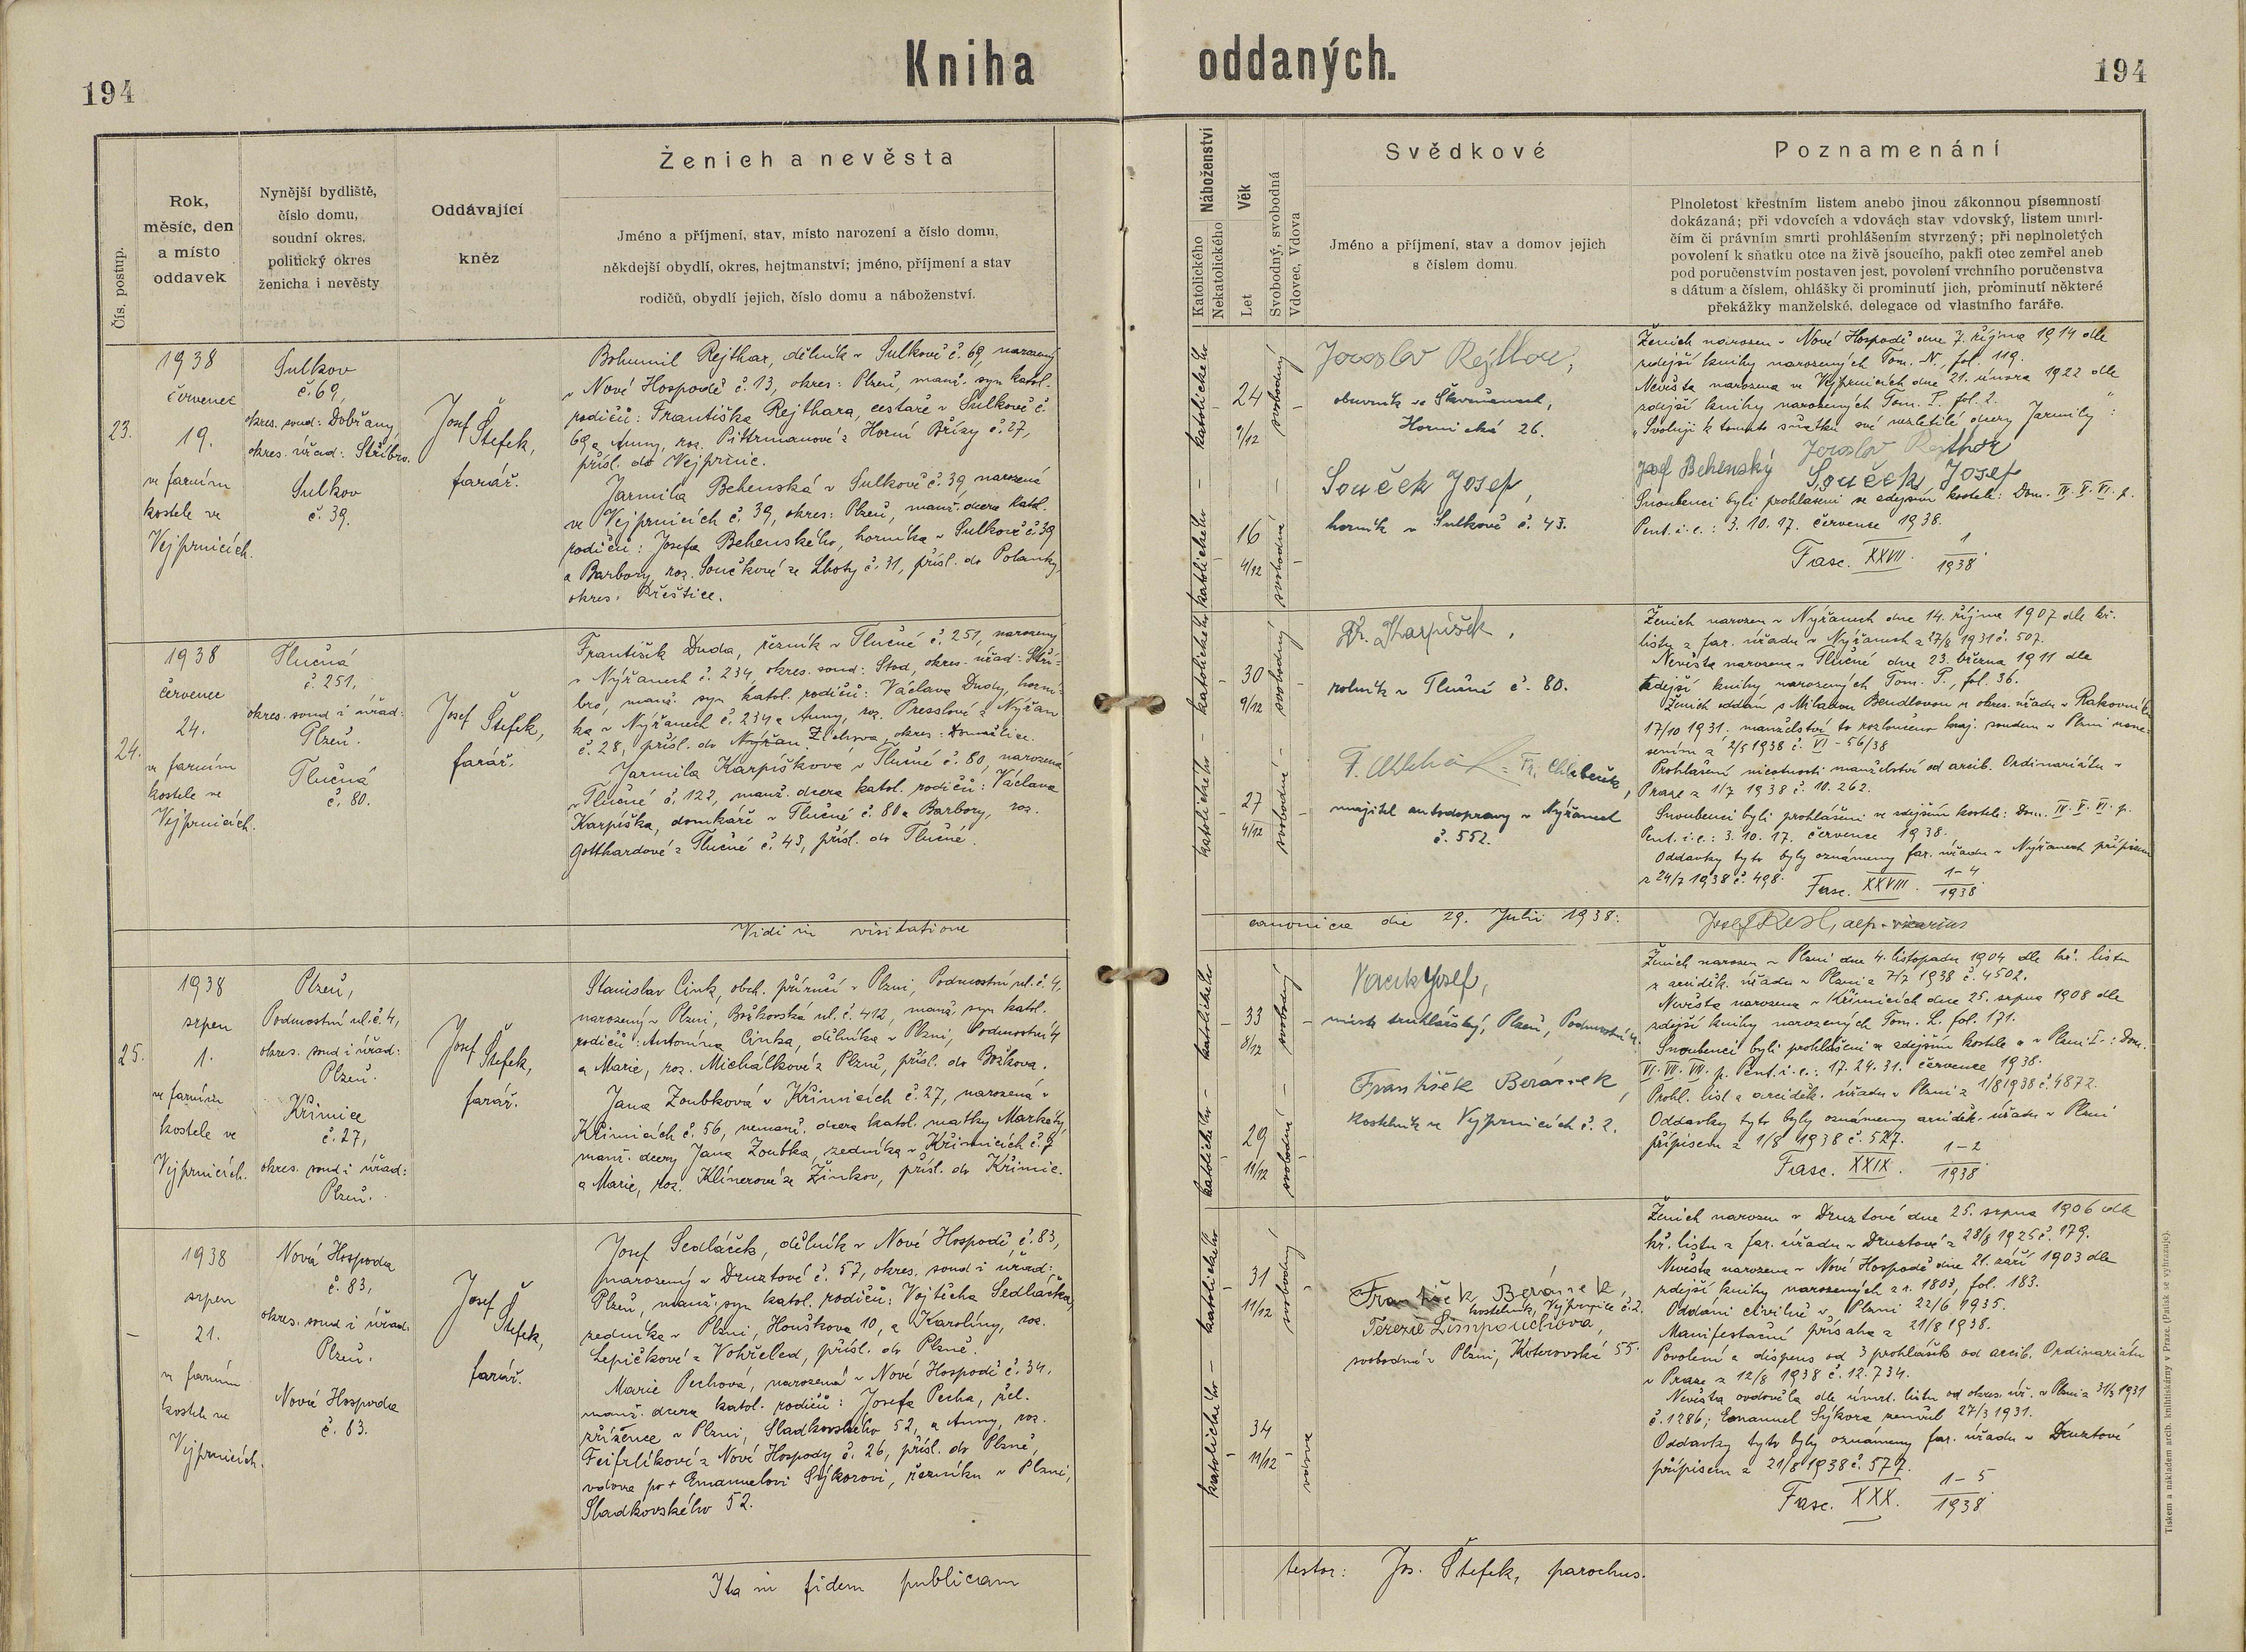 Kniha oddaných.
194
194
Čís. postup.
Rok,
měsíc, den
a místo
oddavek
Nynější bydliště,
číslo domu,
soudní okres,
politický okres
ženicha i nevěsty
Oddávající
kněz
Ženich a nevěsta
Jméno a příjmení, stav, místo narození a číslo domu,
někdejší obydlí, okres, hejtmanství; jméno, příjmení a stav
rodičů, obydlí jejich, číslo domu a náboženství.
Náboženství
Katolického
Nekatolického
Věk
Let
Svobodný, svobodná
Vdovec, Vdova
Svědkové
Jméno a příjmení, stav a domov jejich
s číslem domu.
Poznamenání
Plnoletost křestním listem anebo jinou zákonnou písemností
dokázaná; při vdovcích a vdovách stav vdovský, listem umrl-
čím či právním smrti prohlášením stvrzený; při neplnoletých
povolení k sňatku otce na živě jsoucího, pakli otec zemřel aneb
pod poručenstvím postaven jest, povolení vrchního poručenstva
s dátum a číslem, ohlášky či prominutí jich, prominutí některé
překážky manželské, delegace od vlastního faráře.
23.
1938
červenec
19.
ve farním
kostele ve
Vejprnicích.
Sulkov
č. 69,
okres. soud: Dobřany,
okres. úřad: Stříbro.
Sulkov
č. 39.
Josef Štefek,
farář.
Bohumil Rejthar, dělník v Sulkově č. 69, narozený
v Nové Hospodě č. 13, okres: Plzeň, manž. syn katol.
rodičů: Františka Rejthara, cestáře v Sulkově č.
69 a Anny, roz. Pittrmanové z Horní Břízy č. 27,
přísl. do Vejprnic.
Jarmila Behenská v Sulkově č. 39, narozená
ve Vejprnicích č. 39, okres: Plzeň, manž. dcera katol.
rodičů: Josefa Behenského, horníka v Sulkově č. 39
a Barbory, roz. Součkové ze Lhoty č. 31, přísl. do Polanky,
okres: Přeštice.
katolického — katolického
24
9/12
16
4/12
svobodný
svobodná
Jaroslav Rejthar,
obuvník ve Skvrňanech,
Hornická 26.
Souček Josef,
horník v Sulkově č. 43.
Ženich narozen v Nové Hospodě dne 7. října 1914 dle
zdejší knihy narozených Tom. N., fol. 119.
Nevěsta narozena ve Vejprnicích dne 21. února 1922 dle
zdejší knihy narozených Tom. P. fol. 2.
„Svoluji k tomuto sňatku své nezletilé dcery Jarmily":
Jaroslav Rejthar
Josef Behenský Souček Josef
Snoubenci byli prohlášeni ve zdejším kostele: Dom. IV. V. VI. p.
Pent. i. e.: 3. 10. 17. července 1938.
Fasc. XXVII. 1/1938
24.
1938
červenec
24.
ve farním
kostele ve
Vejprnicích.
Tlučná
č. 251,
okres. soud i úřad:
Plzeň.
Tlučná
č. 80.
Josef Štefek,
farář.
František Duda, řezník v Tlučné č. 251, narozený
v Nýřanech č. 234, okres. soud: Stod, okres. úřad: Stří-
bro, manž. syn katol. rodičů: Václava Dudy, horní-
ka v Nýřanech č. 234 a Anny, roz. Presslové z Nýřan
č. 28, přísl. do Nýřan. Zichova, okres: Domažlice.
Jarmila Karpíšková v Tlučné č. 80, narozená
v Tlučné č. 122, manž. dcera katol. rodičů: Václava
Karpíška, domkáře v Tlučné č. 80 a Barbory, roz.
Gotthardové z Tlučné č. 43, přísl. do Tlučné.
katolického — katolického
30
9/12
27
4/12
svobodný
svobodná
Karpíšek,
rolník v Tlučné č. 80.
= Fr. Chlebeček,
majitel autodopravy v Nýřanech
č. 552.
Ženich narozen v Nýřanech dne 14. října 1907 dle kř.
listu z far. úřadu v Nýřanech z 27/8 1931 č. 507.
Nevěsta narozena v Tlučné dne 23. března 1911 dle
zdejší knihy narozených Tom. P., fol. 36.
Ženich oddán s Miladou Bendlovou u okres. úřadu v Rakovníku
17/10 1931; manželství to rozloučeno kraj. soudem v Plzni usne-
sením z 2/5 1938 č. VI - 56/38
Prohlášení nicotnosti manželství od arcib. Ordinariátu v
Praze z 1/7 1938 č. 10.262.
Snoubenci byli prohlášeni ve zdejším kostele: Dom. IV. V. VI. p.
Pent. i. e.: 3. 10. 17. července 1938.
Oddavky tyto byly oznámeny far. úřadu v Nýřanech přípisem
z 24/7 1938 č. 498.
Fasc. XXVIII. 1-4/1938
Vidi in visitatione canonica die 29. Julii 1938:
vicarius
25.
1938
srpen
1.
ve farním
kostele ve
Vejprnicích.
Plzeň,
Podmostní ul. č. 4,
okres. soud i úřad:
Plzeň.
Křimice
č. 27,
okres. soud i úřad:
Plzeň.
Josef Štefek,
farář.
Stanislav Cink, obch. příručí v Plzni, Podmostní ul. č. 4,
narozený v Plzni, Božkovská ul. č. 412, manž. syn katol.
rodičů: Antonína Cinka, dělníka v Plzni, Podmostní 4
a Marie, roz. Michálkové z Plzně, přísl. do Božkova.
Jana Zoubková v Křimicích č. 27, narozená v
Křimicích č. 56, nemanž. dcera katol. matky Markéty,
manž. dcery Jana Zoubka, zedníka v Křimicích č. 7
a Marie, roz. Klínerové ze Žinkov, přísl. do Křimic.
katolického — katolického
33
8/12
29
11/12
svobodný
svobodná
Vacek Josef,
mistr truhlářský, Plzeň, Podmostní 4.
František Beránek,
kostelník ve Vejprnicích č. 2.
Ženich narozen v Plzni dne 4. listopadu 1904 dle kř. listu
z arciděk. úřadu v Plzni z 7/7 1938 č. 4502.
Nevěsta narozena v Křimicích dne 25. srpna 1908 dle
zdejší knihy narozených Tom. L. fol. 171.
Snoubenci byli prohlášeni ve zdejším kostele a v Plzni-I-: Dom.
VI. VII. VIII. p. Pent. i. e.: 17. 24. 31. července 1938.
Prohl. list z arciděk. úřadu v Plzni z 1/8 1938 č. 4872.
Oddavky tyto byly oznámeny arciděk. úřadu v Plzni
přípisem z 1/8 1938 č. 527.
Fasc. XXIX. 1-2/1938
—
1938
srpen
21.
ve farním
kostele ve
Vejprnicích.
Nová Hospoda
č. 83,
okres. soud i úřad:
Plzeň.
Nová Hospoda
č. 83.
Josef Štefek,
farář.
Josef Sedláček, dělník v Nové Hospodě č. 83,
narozený v Druztové č. 57, okres. soud i úřad:
Plzeň, manž. syn katol. rodičů: Vojtěcha Sedláčka,
zedníka v Plzni, Houškova 10, a Karolíny, roz.
Lepičkové z Vohřeled, přísl. do Plzně.
Marie Pechová, narozená v Nové Hospodě č. 34,
manž. dcera katol. rodičů: Josefa Pecha, žel.
zřízence v Plzni, Sladkovského 52, a Anny, roz.
Feifrlíkové z Nové Hospody č. 26, přísl. do Plzně,
vdova po + Emanuelovi Sýkorovi, řezníku v Plzni,
Sladkovského 52.
katolického — katolického
31
11/12
34
11/12
svobodný
vdova
František Beránek,
kostelník, Vejprnice č. 2.
Terezie Limpouchova,
svobodná v Plzni, Koterovská 55.
Ženich narozen v Druztové dne 25. srpna 1906 dle
kř. listu z far. úřadu v Druztové z 28/8 1925 č. 179.
Nevěsta narozena v Nové Hospodě dne 21. září 1903 dle
zdejší knihy narozených z r. 1803, fol. 183.
Oddáni civilně v Plzni 22/6 1935.
Manifestační přísaha z 21/8 1938.
Povolení a dispens od 3 prohlášek od arcib. Ordinariátu
v Praze z 12/8 1938 č. 12.734.
Nevěsta ovdověla dle úmrt. listu od okres. úř. v Plzni z 31/3 1931
č. 1286; Emanuel Sýkora zemřel 27/3 1931.
Oddavky tyto byly oznámeny far. úřadu v Druztové
přípisem z 21/8 1938 č. 577.
Fasc. XXX. 1-5/1938
Ita in fidem publicam testor: Jos. Štefek, parochus.
Tiskem a nákladem arcib. knihtiskárny v Praze. (Patisk se vyhrazuje).